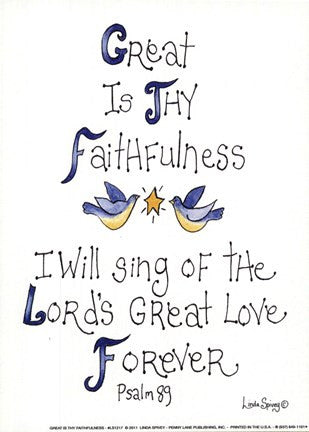 Great
Is Thy
Faithfulness
I Will sing of the
Lord's Great Love
Forever
Psalm 89
Linda Spivey ©
GREAT IS THY FAITHFULNESS - #LS1217 © 2011 LINDA SPIVEY - PENNY LANE PUBLISHING, INC. - PRINTED IN THE U.S.A.